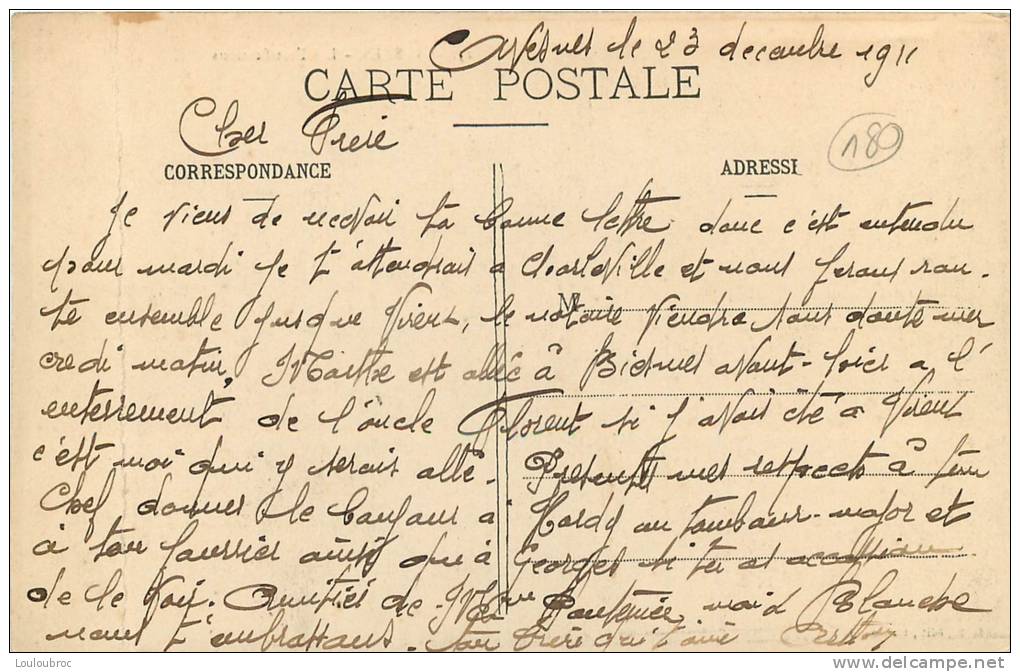 Avesnes le 23 decembre 1911
CARTE POSTALE
Cher Frere
180
CORRESPONDANCE
ADRESSE
Je viens de recevoir ta bonne lettre donc c'est entendu
pour mardi je t'attendrais a Charleville et nous ferons rou-
M
te ensemble jusque Vireux, le notaire viendra sans doute mer
credi matin, Marthe est allée à Biesmes avant-hier a l'
enterrement de l'oncle Florent si j'avais été a Vireux
c'est moi qui y serais allé. Presente mes respects à ton
Chef donnes le bonjour à Hardy au tambour-major et
à ton fourrier ainsi qu'à Georges si tu as occasion
de le voir. Amitiés de Mme moi & Blanche
nous t'embrassons. ton frère qui t'aime
Louloubroc
http://www.delcampe.net